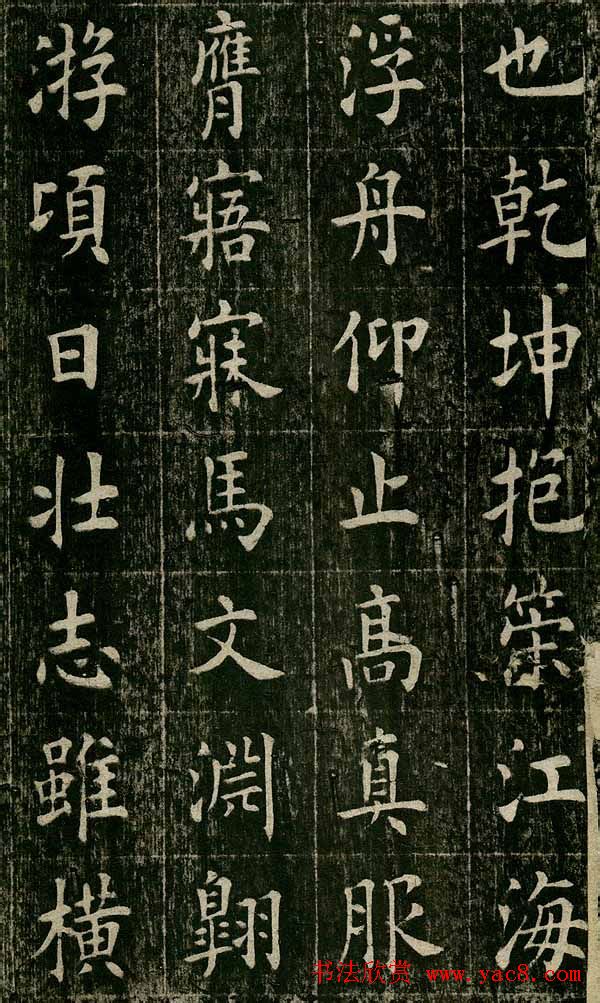 也乾坤抱策江海
浮舟仰止髙真服
膺寤寐馬文淵翱
游頃日壯志雖橫
书法欣赏 www.yac8.com